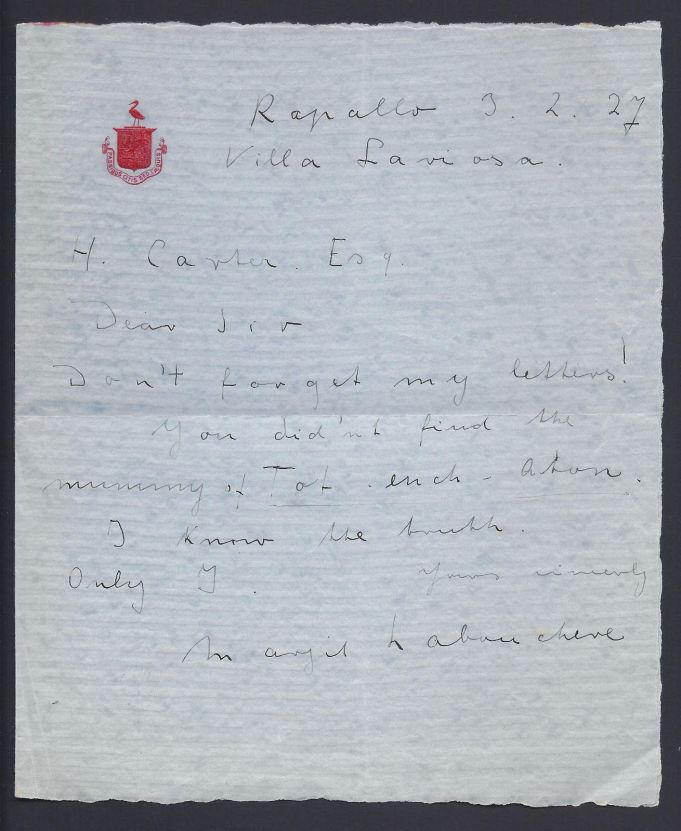 Rapallo 3. 2. 27
Villa Laviosa.
H. Carter. Esq.
Dear Sir
Don't forget my letters!
You did'nt find the
mummy of Tot-ench-Aton.
I know the truth.
Only I. Yours sincerly
Margit Labouchere